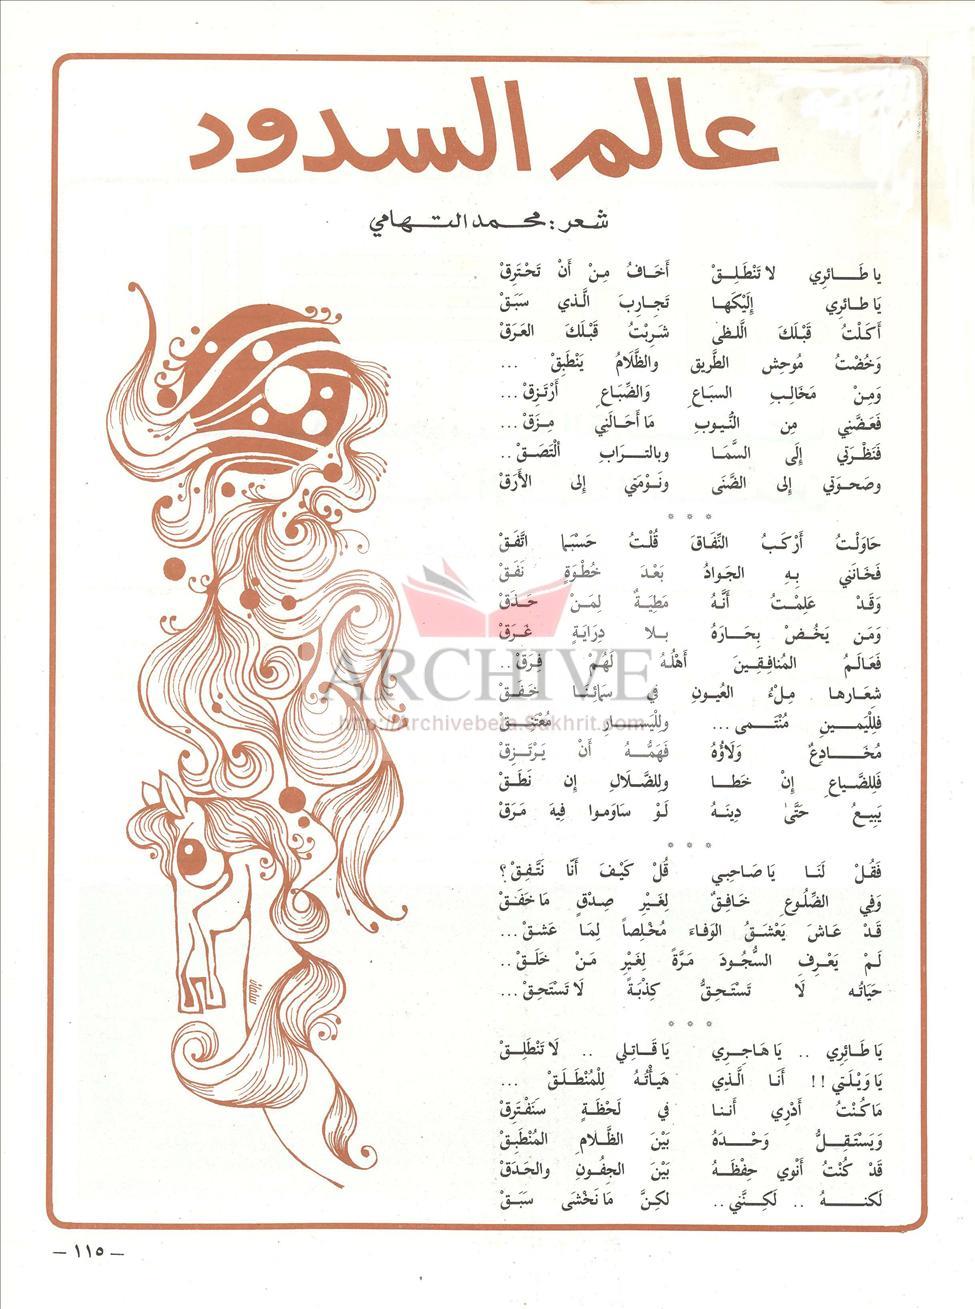 عالم السدود
شعر : محمد التهامي
يا طَــائِرِي لا تَنْطَلِــقْ أَخَـافُ مِـنْ أَنْ تَحْتَرِقْ
يَا طـائِرِي إِلَيْكَهـا تَجـارِبَ الَّـذي سَبَـقْ
أَكَلْـتُ قَبْـلَكَ اللَّـظى شَـرِبْتُ قَبْـلَكَ العَـرَقْ
وَخُضْتُ مُوحِش الطَّريق والظَّلَامُ يَنْطَبِقْ ...
وَمِنْ مَخَالِـبِ السبَـاعِ وَالضِّبَـاعِ أَرْتَـزِقْ ...
فَعَضَّنِي مِن النُّيـوبِ مَا أَحَـالَنِي مِـزَقْ ...
فَنَظْـرَتي إِلَى السَّمَـا وبالتــرَابِ أَلْتَصَـقْ ..
وصَحـوَتي إِلى الضَّنَى ونَـوْمَتي إِلى الأَرَقْ
* * *
حَاوَلْـتُ أَرْكَـبُ النِّفَـاقَ قُلْـتُ حَسْبَـا اتَّفَـقْ
فَخَـانَني بِـهِ الجَـوادُ بَعْـدَ خُطْـوَةٍ نَفَـقْ
وَقَـدْ عَلِمْـتُ أَنَّـهُ مَطِيَّـةٌ لِمَـنْ حَـذَقْ
وَمَـن يَخُـضْ بِحَـارَهُ بـلا دِرَايَـةٍ غَـرَقْ
فَعَـالَمُ المُنافِقِـينَ أَهْلُـهُ لَهُـم فِـرَقْ ..
شعَـارها مِـلْءُ العُيـونِ في سمائِنَـا خَفَـقْ
فِللْيَمـينِ مُنْتَـمى ... ولِلْيسـارِ مُعْتَنَـقْ
مُخَـادِعٌ وَلَاؤُهُ فَهَمُّـهُ أَنْ يَـرْتَـزِقْ
فَللِضَّياعِ إنْ خَطـا وللضَّلَالِ إن نَطَـقْ
يَبيـعُ حَتَّى دِينَـهُ لَـوْ سَاوَمـوا فِيهَ مَرَقْ
* * *
فَقُـلْ لَنَـا يَا صَـاحِبي قُلْ كَيْـفَ أَنَّا نَتَّفِـقْ ؟
وَفي الضِّلُـوعِ خَافِـقٌ لِغَيْـرِ صِدْقٍ مَا خَفَـقْ
قَـدْ عَـاشَ يَعْشَـقُ الوَفـاءَ مُخْلِصـاً لِمَـا عَشَـقْ ...
لَمْ يَعْـرِفِ السُّجُـودَ مَرَّةً لِغَيْـرِ مَـنْ خَلَـقْ ..
حَيَاتُـه لَا تَسْتَحِـقُّ كِذْبَـةً لَا تَسْتَحِـقْ ...
* * *
يَا طَائِرِي .. يَا هَاجِـري يَا قَـاتِلي .. لَا تَنْطَلِـقْ
يَا وَيْـلَتي !! أَنـا الَّـذي هَيـأْتُـهُ لِلْمُنْطَلَـقْ ...
مَا كُنْـتُ أَدْرِي أَنـنـا في لَحْظَـةٍ سَنَفْـتَرِقْ
وَيَسْتَقِـلُّ وَحْـدَهُ بَيْنَ الظَّـلامِ المُنْطَبِـقْ
قَدْ كُنْتُ أَنْوي حِفْظَـهُ بَيْنَ الجِفُـونِ والحَدَقْ
لَكنـهُ .. لَكِنَّني .. لكِنَّ مَا نَخْشَى سَبَـقْ
ARCHIVE
http://Archivebeta.Sakhrit.com
– ١١٥ –